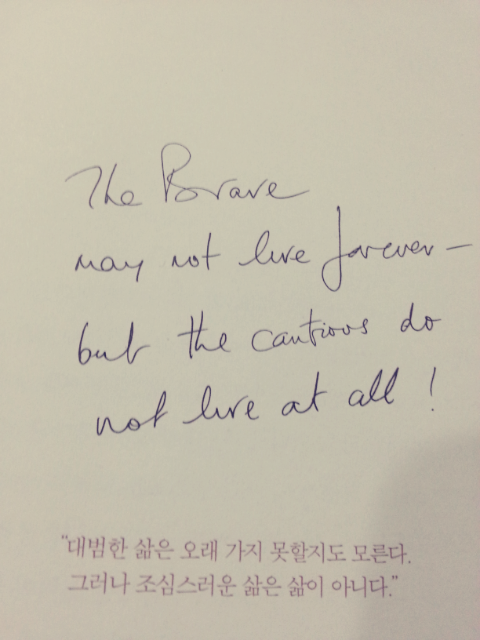 The Brave
may not live forever —
but the cautious do
not live at all !
"대범한 삶은 오래 가지 못할지도 모른다.
그러나 조심스러운 삶은 삶이 아니다."